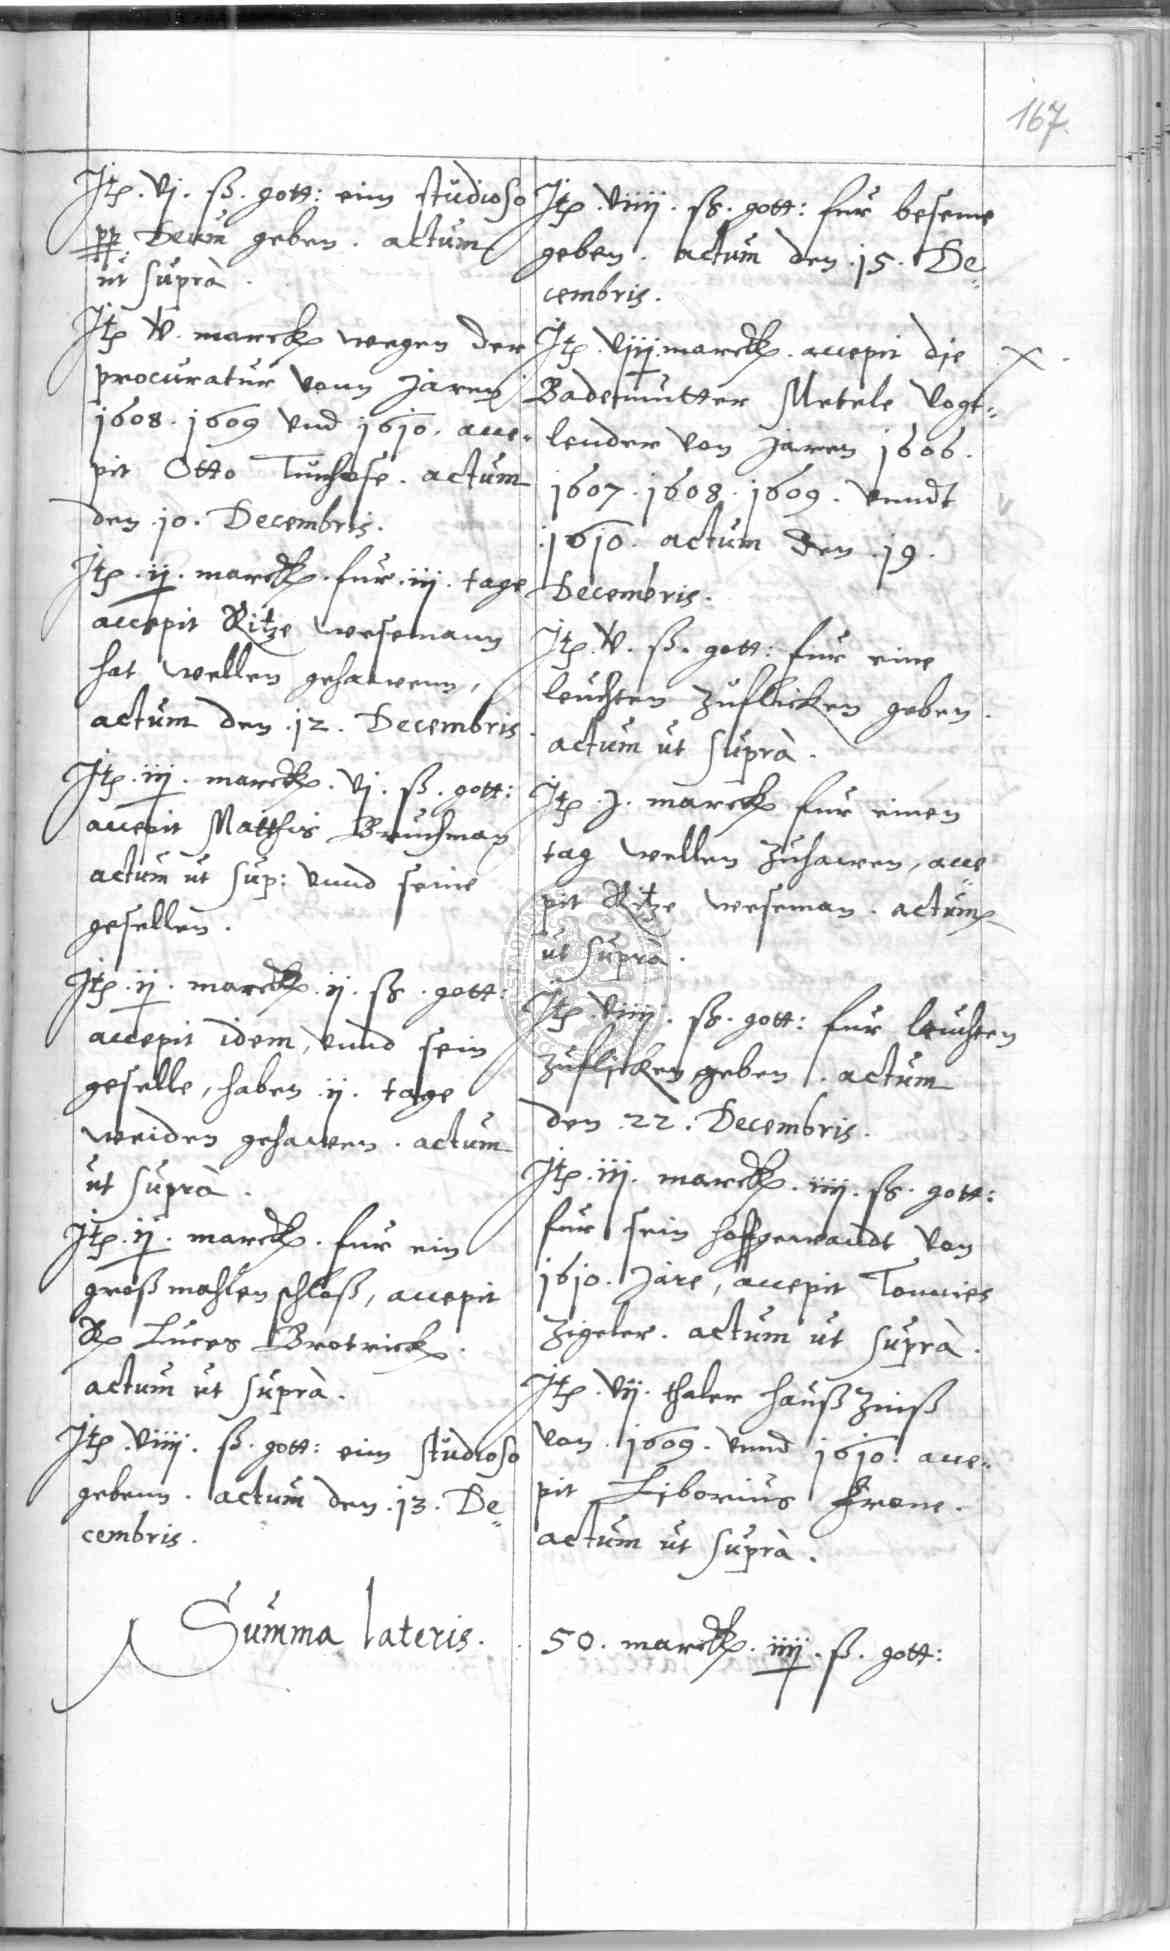 167.
Itē. vj. ß. gott: eim studioso
pp Deum geben. actum
ut suprà.
Itē v. marck wegen der
procuratur vonn Jaren
1608. 1609 vnd 1610. acce-
pit Otto Tunhose. actum
den .10. Decembris.
Itē. ij. marck. fur. iij. tage
accepit Ritze wesemann
hat wellen gehawenn,
actum den .12. Decembris.
Itē. iij. marck. vj. ß. gott:
accepit Matthis Bruchman
actum ut sup: vnnd seine
gesellen.
Itē. ij. marck. ij. ß. gott:
accepit idem, vnnd sein
geselle, haben .ij. tage
weiden gehawen. actum
ut suprà.
Itē. ij. marck. fur ein
groß mahlen schloß, accepit
Luces Brotrick.
actum ut suprà.
Itē. viiij. ß. gott: eim studioso
gebenn. actum den .13. De-
cembris.
Itē. viiij. ß. gott: fur beseme
geben. actum den .15. De-
cembris.
Itē. viij. marck. accepit die
Bademutter Metele Vogt-
lender von Jaren 1606.
1607. 1608. 1609. vnndt
1610. actum den .19.
Decembris.
Itē. v. ß. gott: fur eine
leuchten zuflicken geben.
actum ut suprà.
Itē. j. marck fur einen
tag wellen zuhawen, acce-
pit Ritze weseman. actum
ut suprà.
Itē. viiij. ß. gott: fur leuchten
zuflicken geben. actum
den .22. Decembris.
Itē. iij. marck. iiij. ß. gott:
fur sein hoffgewandt von
1610. Jare, accepit Tonnies
Zigeler. actum ut suprà.
Itē. vij. thaler haußzinß
von .1609. vnnd 1610. acce-
pit Liborius Krane.
actum ut suprà.
Summa lateris. 50. marck. iiij. ß. gott: